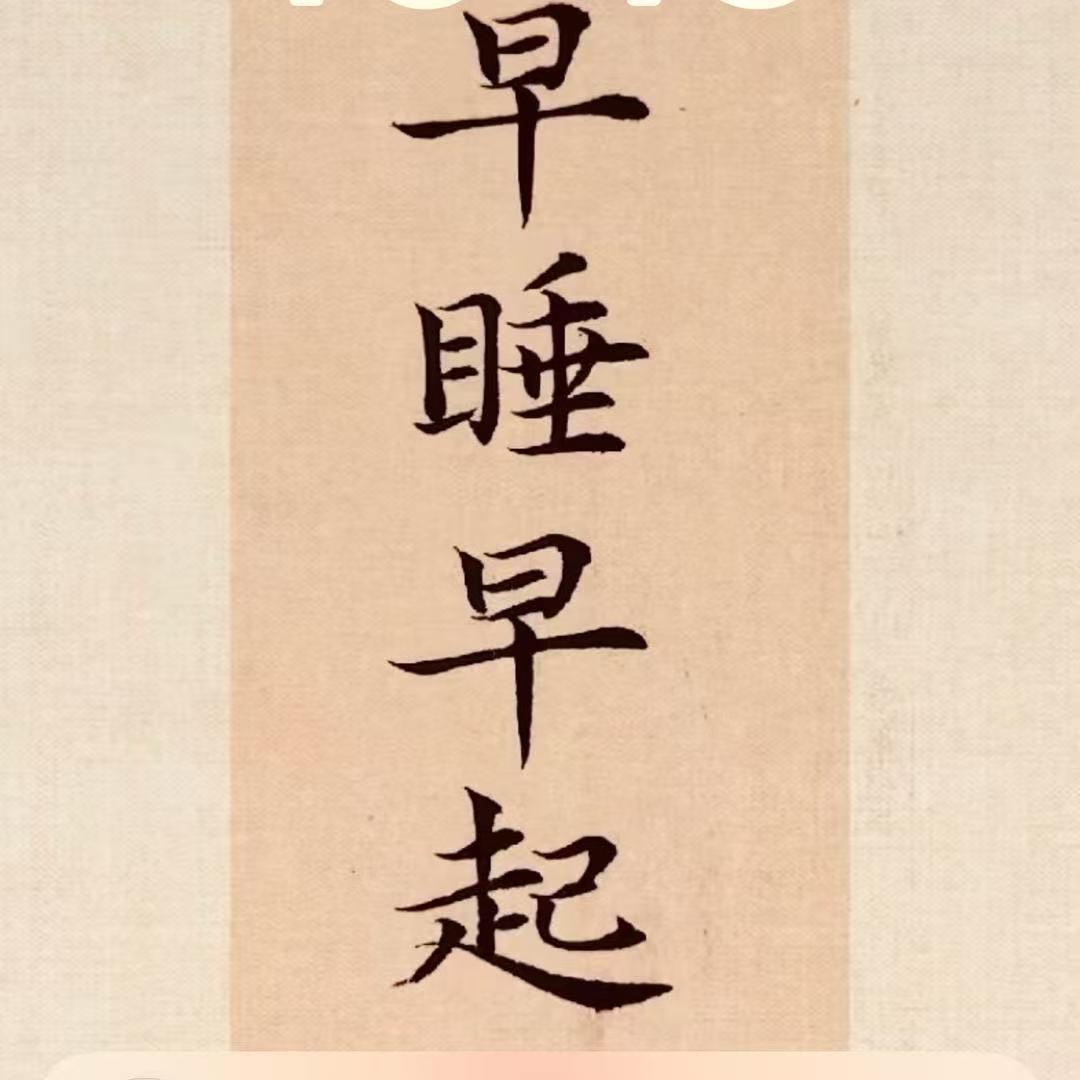 早睡早起